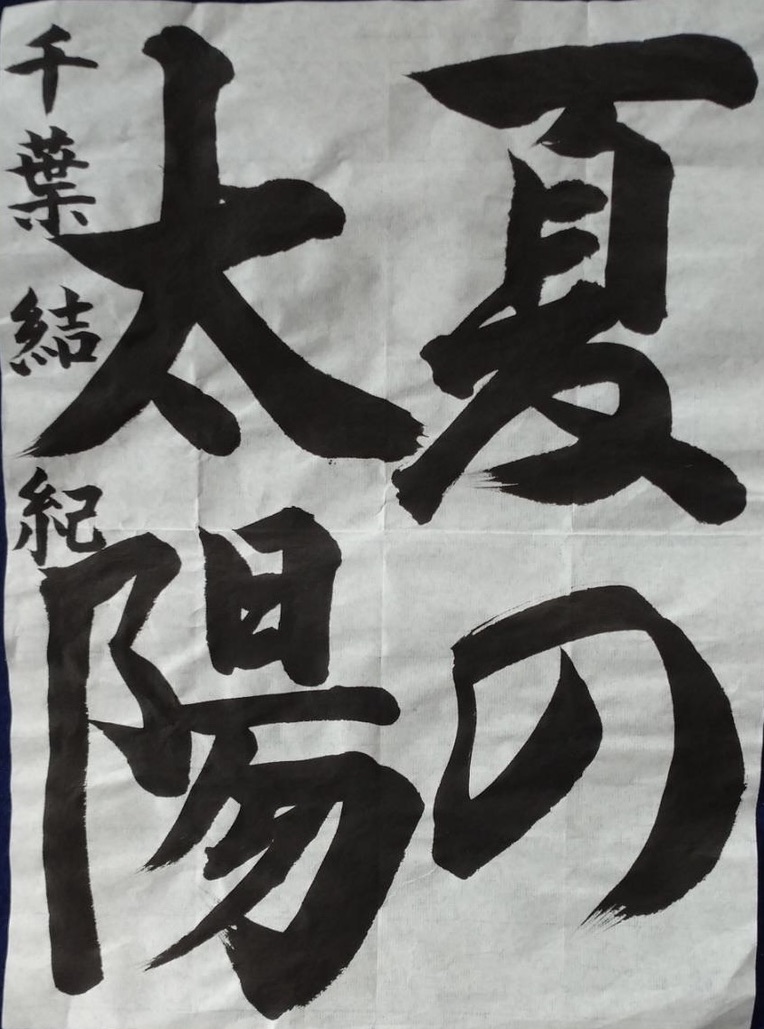 夏の
太陽
千葉結紀